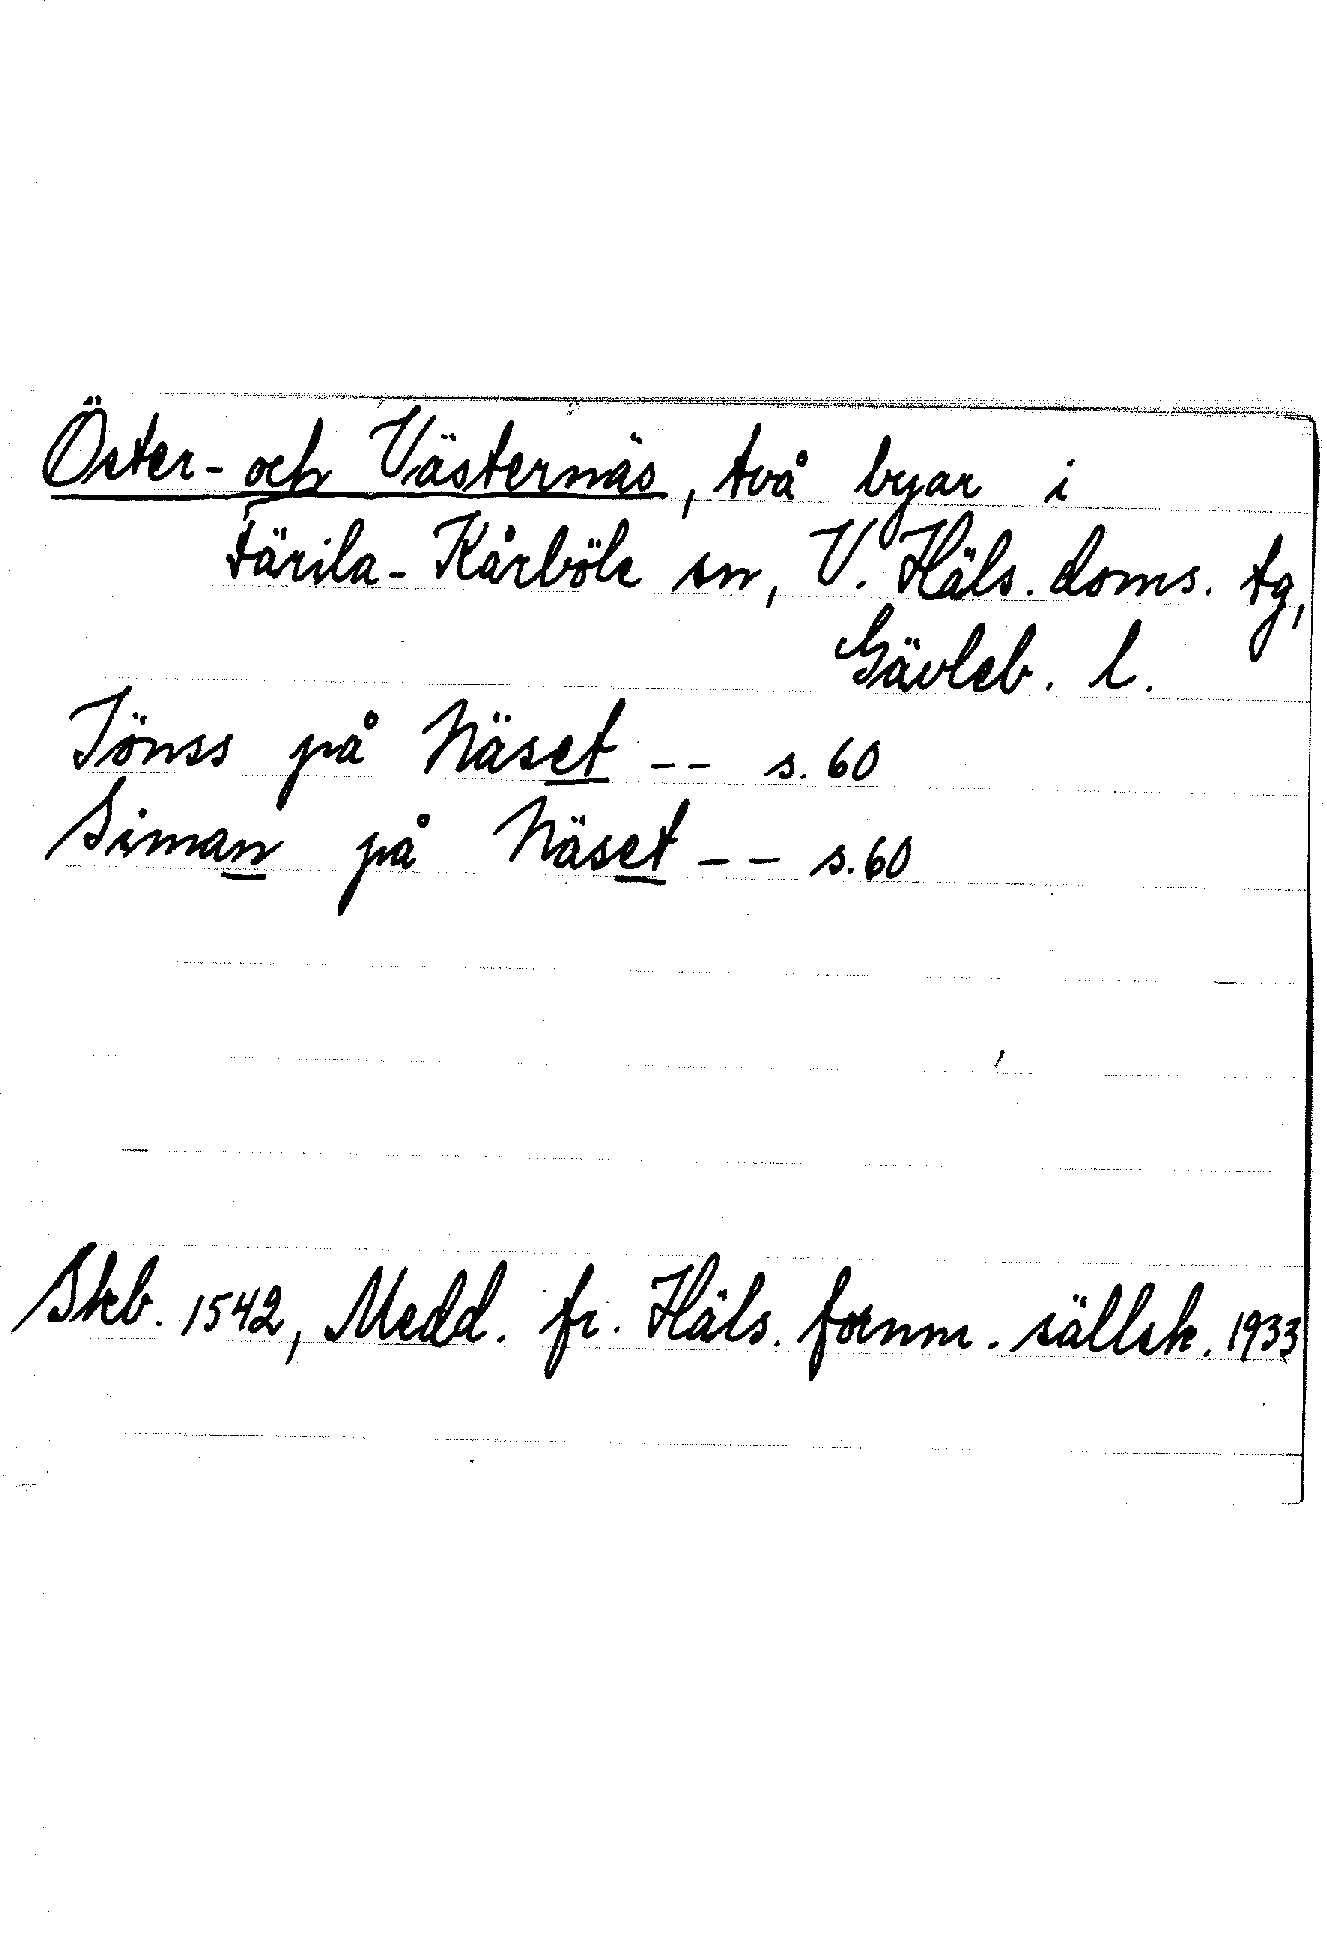 Öster- och Västernäs, två byar i
Färila-Kårböle sn, V. Häls. doms. tg,
Gävleb. l.
Jönss på Näset -- s. 60
Siman på Näset -- s. 60
Skb. 1542, Medd. fr. Häls. fornm. sällsk. 1933